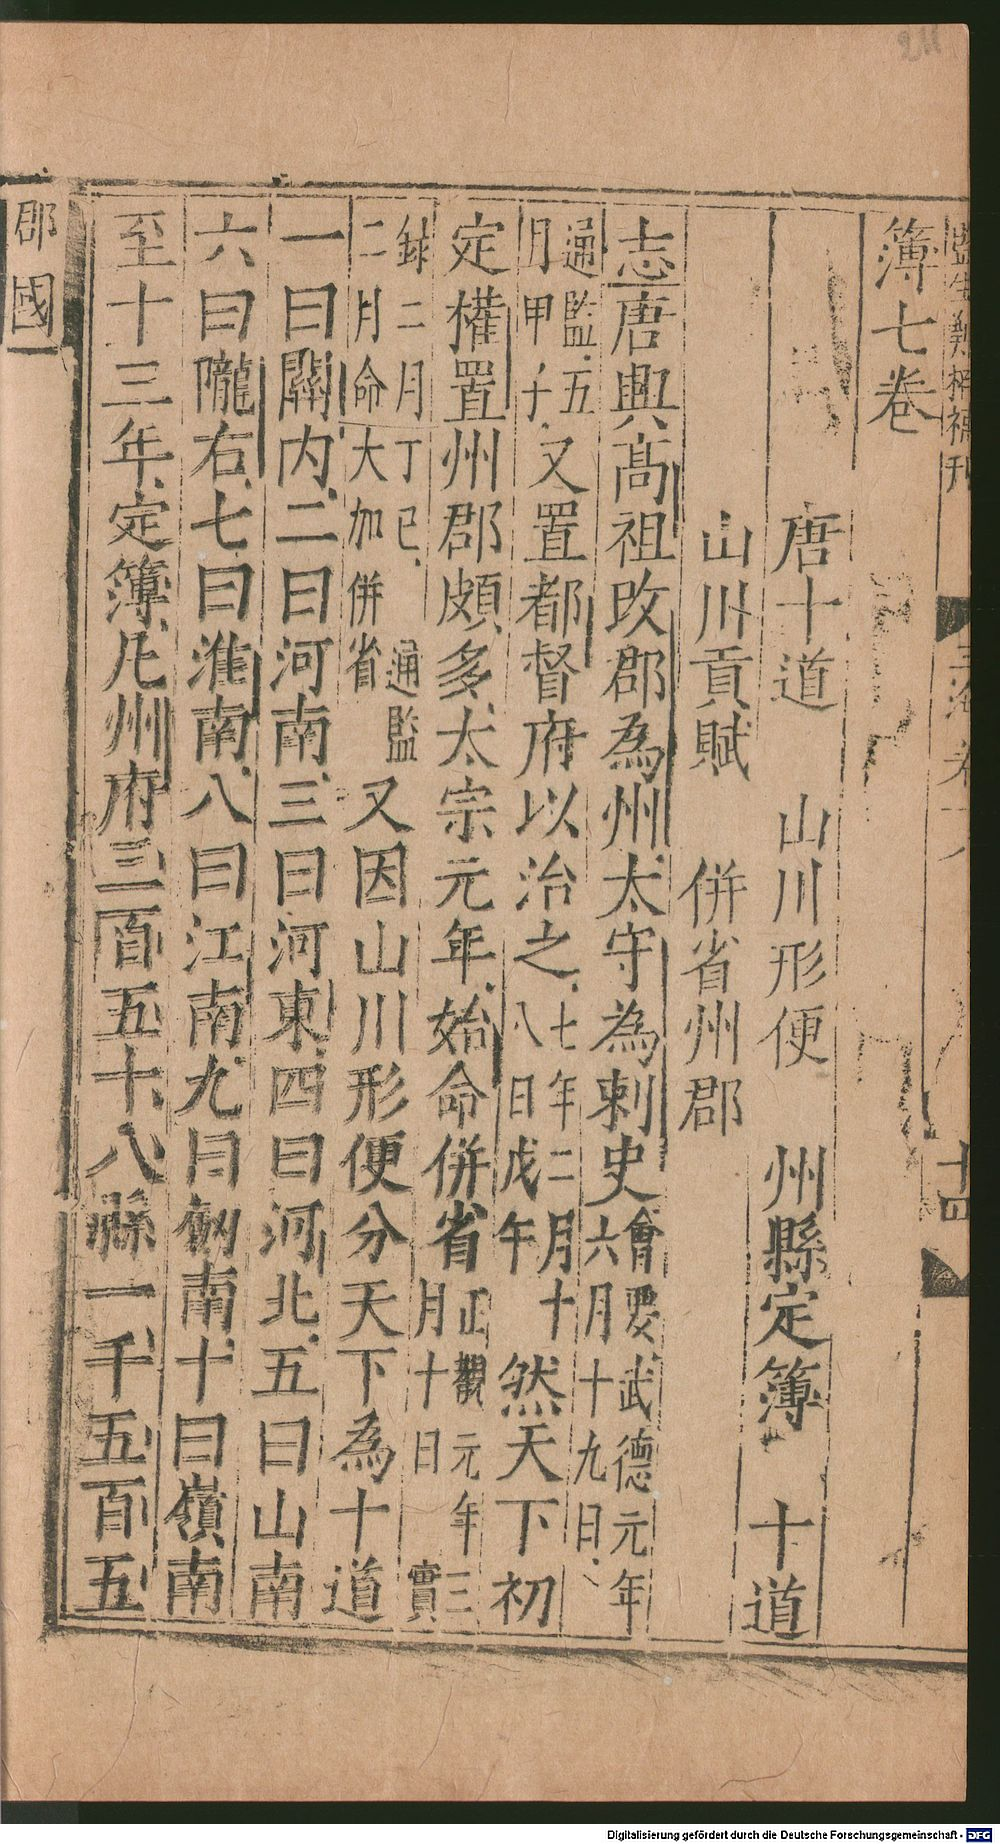 簿七卷
唐十道 山川形便 州縣定簿 十道
山川貢賦 併省州郡
志唐興髙祖改郡為州太守為刺史會要武德元年六月十九日
通監五月甲子又置都督府以治之七年二月十八日戊午然天下初
定權置州郡頗多太宗元年始命併省正觀元年三月十日實
錄二月丁巳通監二月命大加併省又因山川形便分天下為十道
一曰關内二曰河南三曰河東四曰河北五曰山南
六曰隴右七曰淮南八曰江南九曰劒南十曰嶺南
至十三年定簿凡州府三百五十八縣一千五百五
郡國
十四
Digitalisierung gefördert durch die Deutsche Forschungsgemeinschaft - DFG